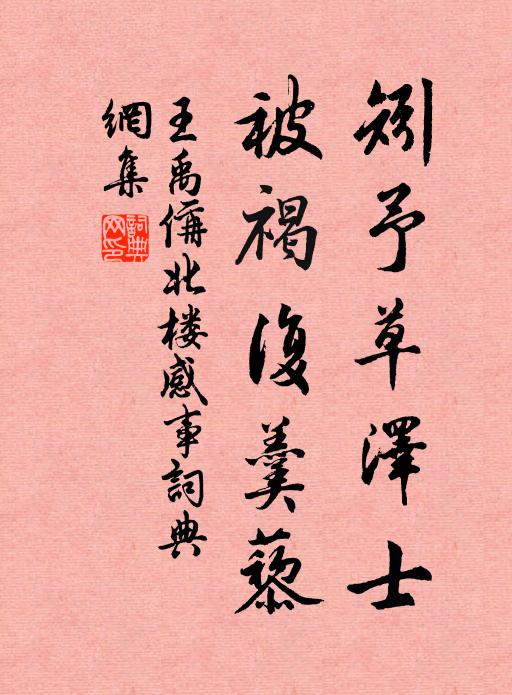 矧予草澤士
被褐復羹藜
王禹偁北楼感事詞典
網集
詞典网印